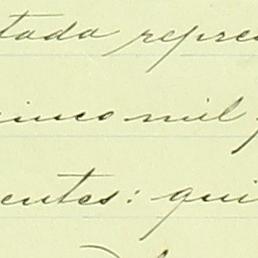 tada repre
cinco mil
entes: qui